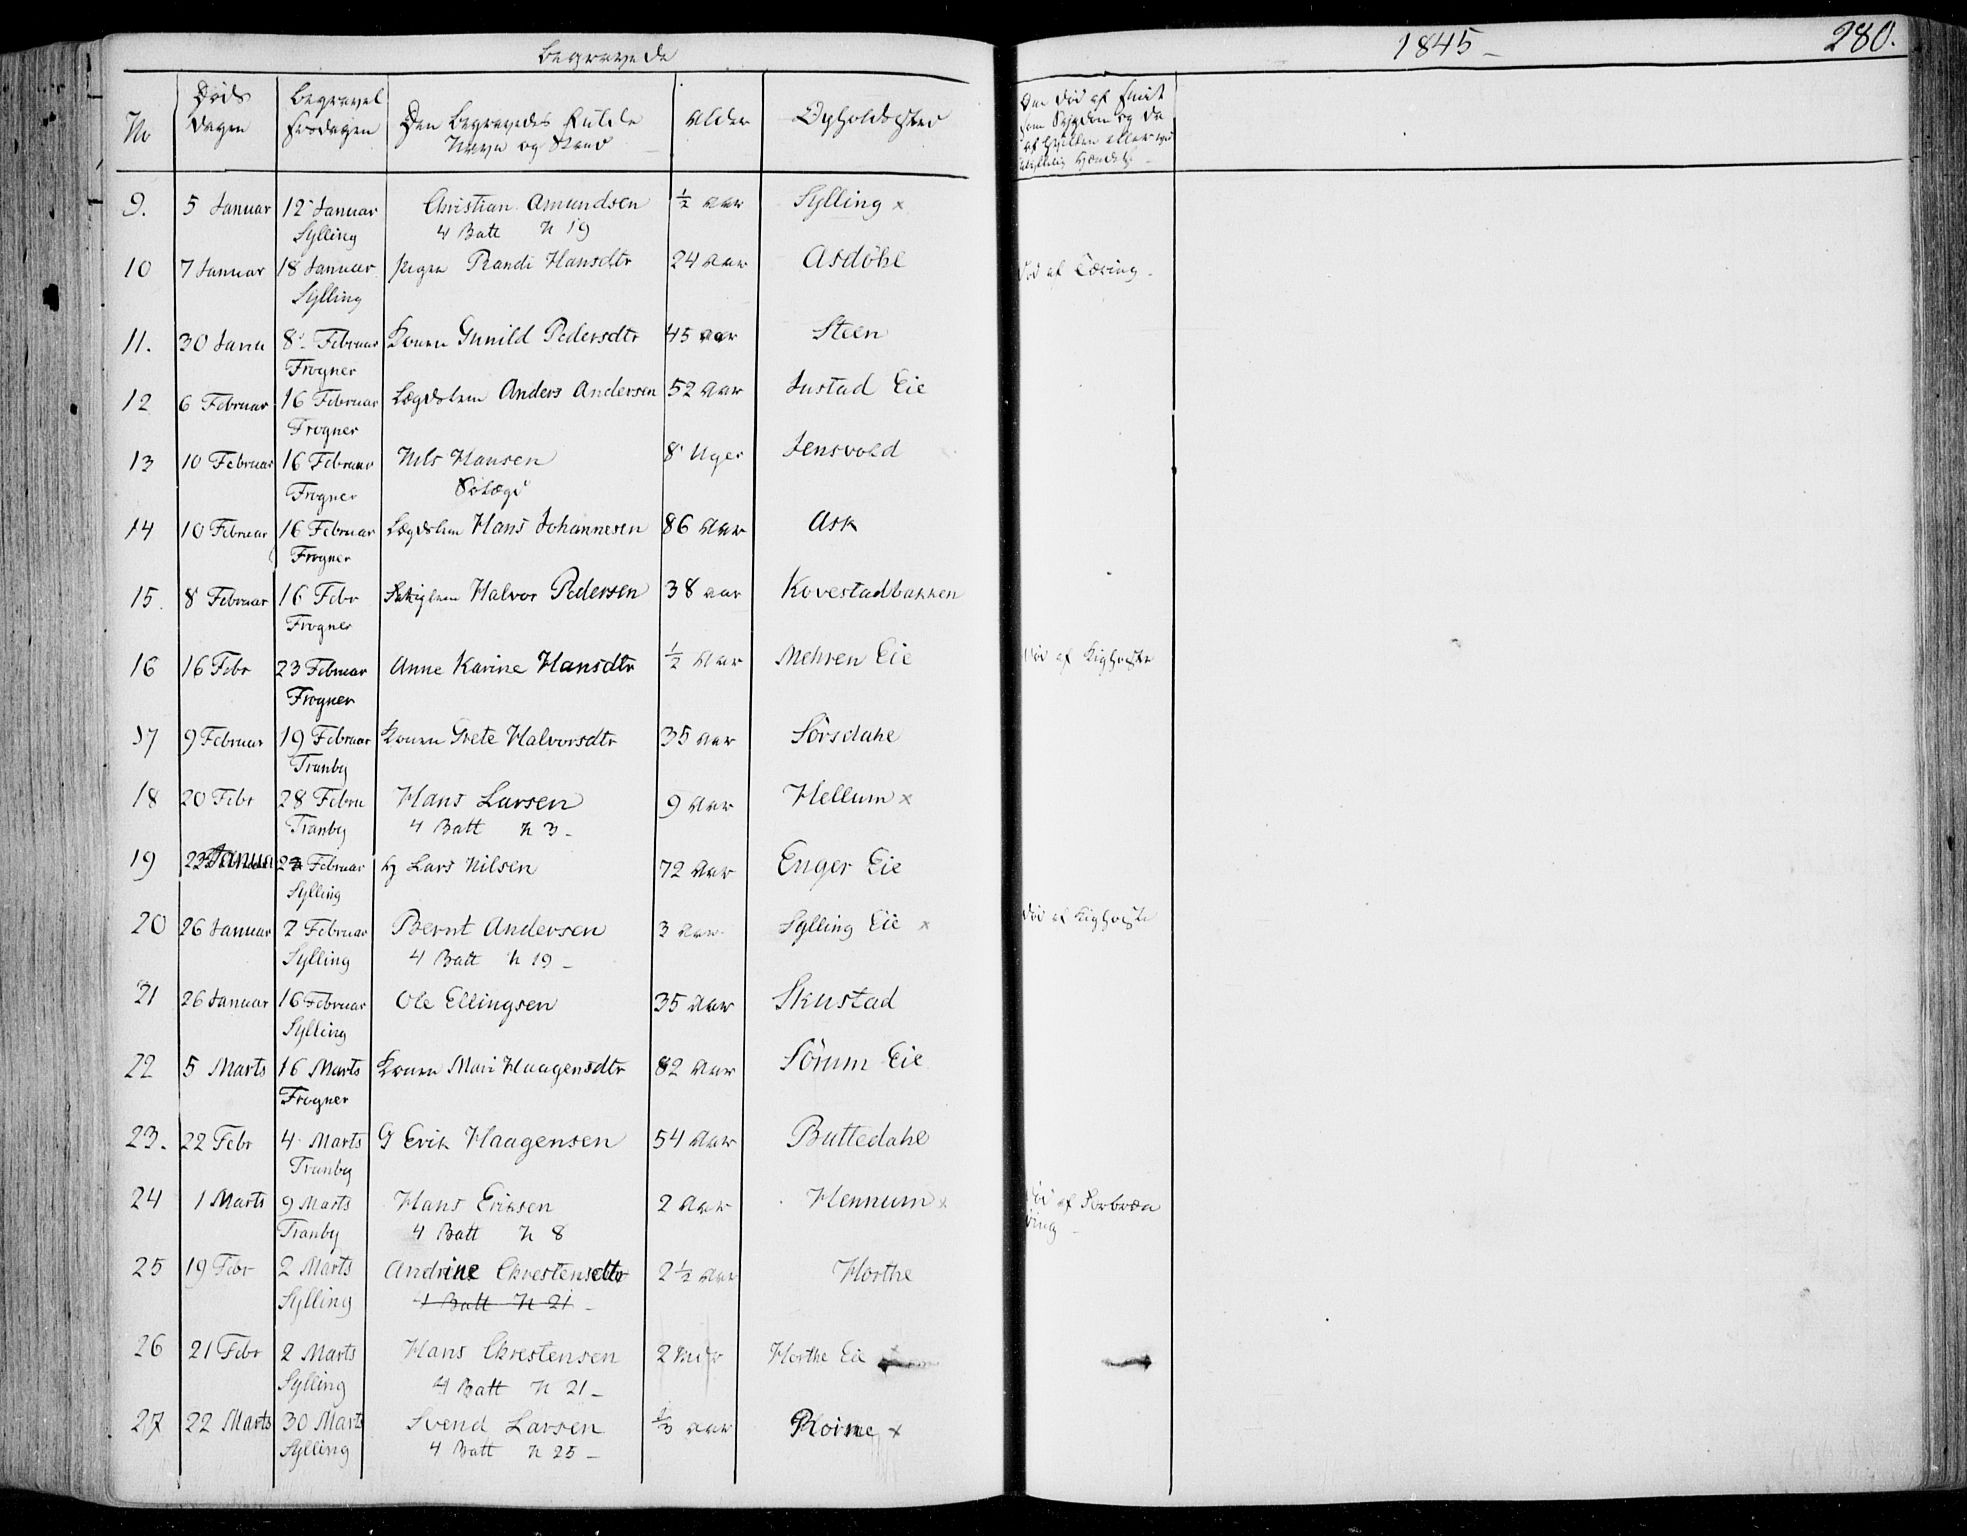 Begravede
1845 –
280.
No
Døds
dagen
Begravel
sesdagen
Den Begravedes Fulde
Navn og Stand
Alder
Opholdssted
9. 5 Januar 12 Januar Christian Amundsen ½ Aar Sylling x
Sylling 4 Batt N 19
10 7 Januar 18 Januar Pigen Randi Hansdtr 24 Aar Asdöhl Død af Tæring.
Sylling
11. 30 Janu 8 Februar Konen Gunild Pedersdtr 45 Aar Steen
Frogner
12 6 Februar 16 Februar Lægdslem Anders Andersen 52 Aar Justad Eie
Frogner
13 10 Februar 16 Februar Nils Hansen 8 Uger Jensvold
Frogner
14 10 Februar 16 Februar Lægdslem Hans Johannesen 86 Aar Ask
Frogner
15. 8 Februar 16 Febr Halvor Pedersen 38 aar Kovestadbakken
Frogner
16 16 Febr 23 Februar Anne Karine Hansdtr ½ Aar Mehren Eie Død af Kighoste
Frogner
17 9 Februar 19 Februar Konen Grete Halvorsdtr 35 Aar Sörsdahl
Tranby
18 20 Febr 28 Febru Hans Larsen 9 Aar Hellum x
Tranby 4 Batt N 3 –
19 Janua Februar Lars Nilsen 72 Aar Enger Eie
Sylling
20 26 Januar 2 Februar Bernt Andersen 3 Aar Sylling Eie x Død af Kighoste
Sylling 4 Batt N 19 –
21 26 Januar 16 Februar Ole Ellingsen 35 Aar Skustad
Sylling
22 5 Marts 16 Marts Konen Mari Haagensdtr 82 Aar Sörum Eie
Frogner
23. 22 Febr 4 Marts G Erik Haagensen 54 Aar Buttedahl
Tranby
24 1 Marts 9 Marts Hans Eriksen 2 Aar Hennum x Død af
Tranby 4 Batt N 8
25 19 Febr 2 Marts Andrine Chrestensdtr 2½ Aar Horthe
Sylling 4 Batt N 21 –
26 21 Febr 2 Marts Hans Chrestensen 2 Horthe Eie
Sylling 4 Batt N 21 –
27 22 Marts 30 Marts Svend Larsen ⅓ aar Roine x
Sylling 4 Batt N 25 –